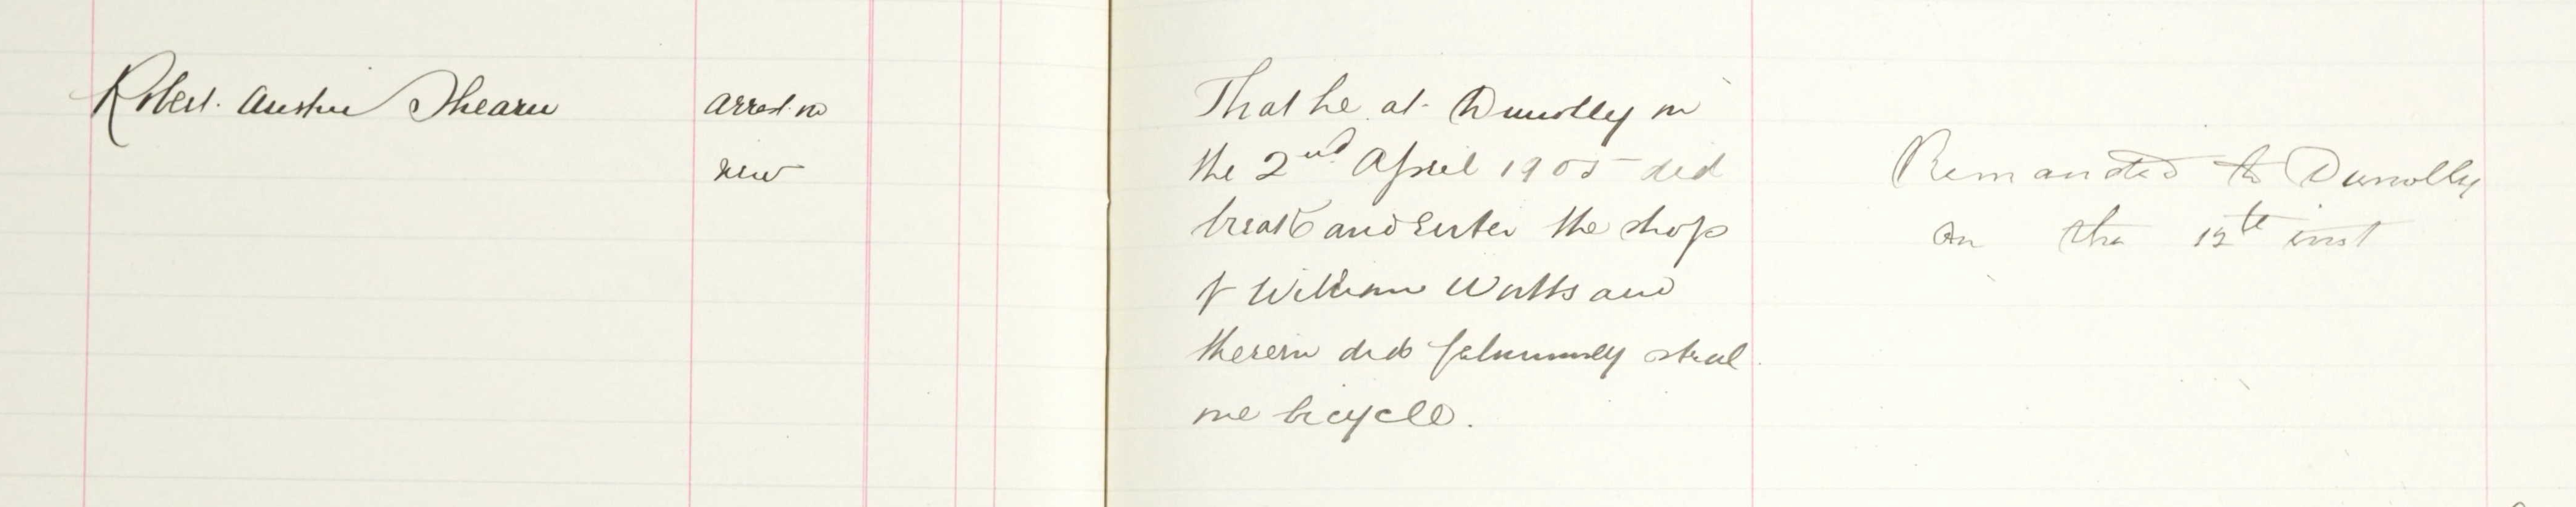 Robert Austin Shearn
Arrest on
view
That he at Dunolly on
the 2nd April 1905 did
break and Enter the shop
of William Watts and
therein did feloniously steal
one bicycle.
Remanded to Dunolly
on the 12th inst